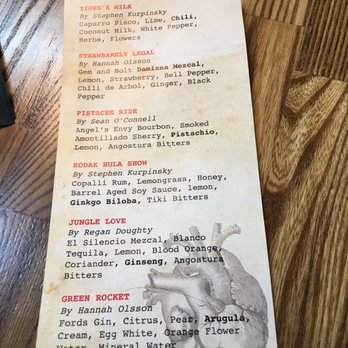 TIGER'S MILK
By Stephen Kurpinsky
Capurro Pisco, Lime, Chili,
Coconut Milk, White Pepper,
Herbs, Flowers
STRAWBARELY LEGAL
By Hannah Olsson
Gem and Bolt Damiana Mezcal,
Lemon, Strawberry, Bell Pepper,
Chili de Arbol, Ginger, Black
Pepper
PISTACHE RIDE
By Sean O'Connell
Angel's Envy Bourbon, Smoked
Amontillado Sherry, Pistachio,
Lemon, Angostura Bitters
KODAK HULA SHOW
By Stephen Kurpinsky
Copalli Rum, Lemongrass, Honey,
Barrel Aged Soy Sauce, lemon,
Ginkgo Biloba, Tiki Bitters
JUNGLE LOVE
By Regan Doughty
El Silencio Mezcal, Blanco
Tequila, Lemon, Blood Orange,
Coriander, Ginseng, Angostura
Bitters
GREEN ROCKET
By Hannah Olsson
Fords Gin, Citrus, Pear, Arugula,
Cream, Egg White, Orange Flower
Water, Mineral Water